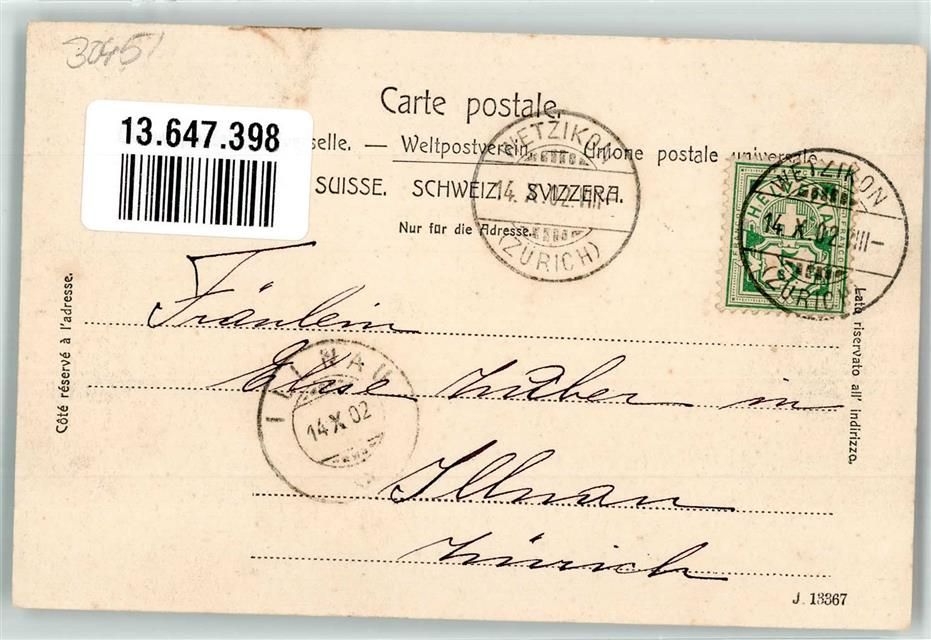 30451
13.647.398
Carte postale.
selle. — Weltpostverein. Unione postale universale
SUISSE. SCHWEIZ. SVIZZERA.
Nur für die Adresse.
WETZIKON
14. X. 02. VIII
(ZÜRICH)
WETZIKON
14. X. 02. VIII—
(ZÜRICH)
HELVETIA
5
Côté réservé à l'adresse.
Lato riservato all' indirizzo.
Fräulein
Elise Huber in
ILLNAU
14 X 02
Illnau
Zürich
J. 13367